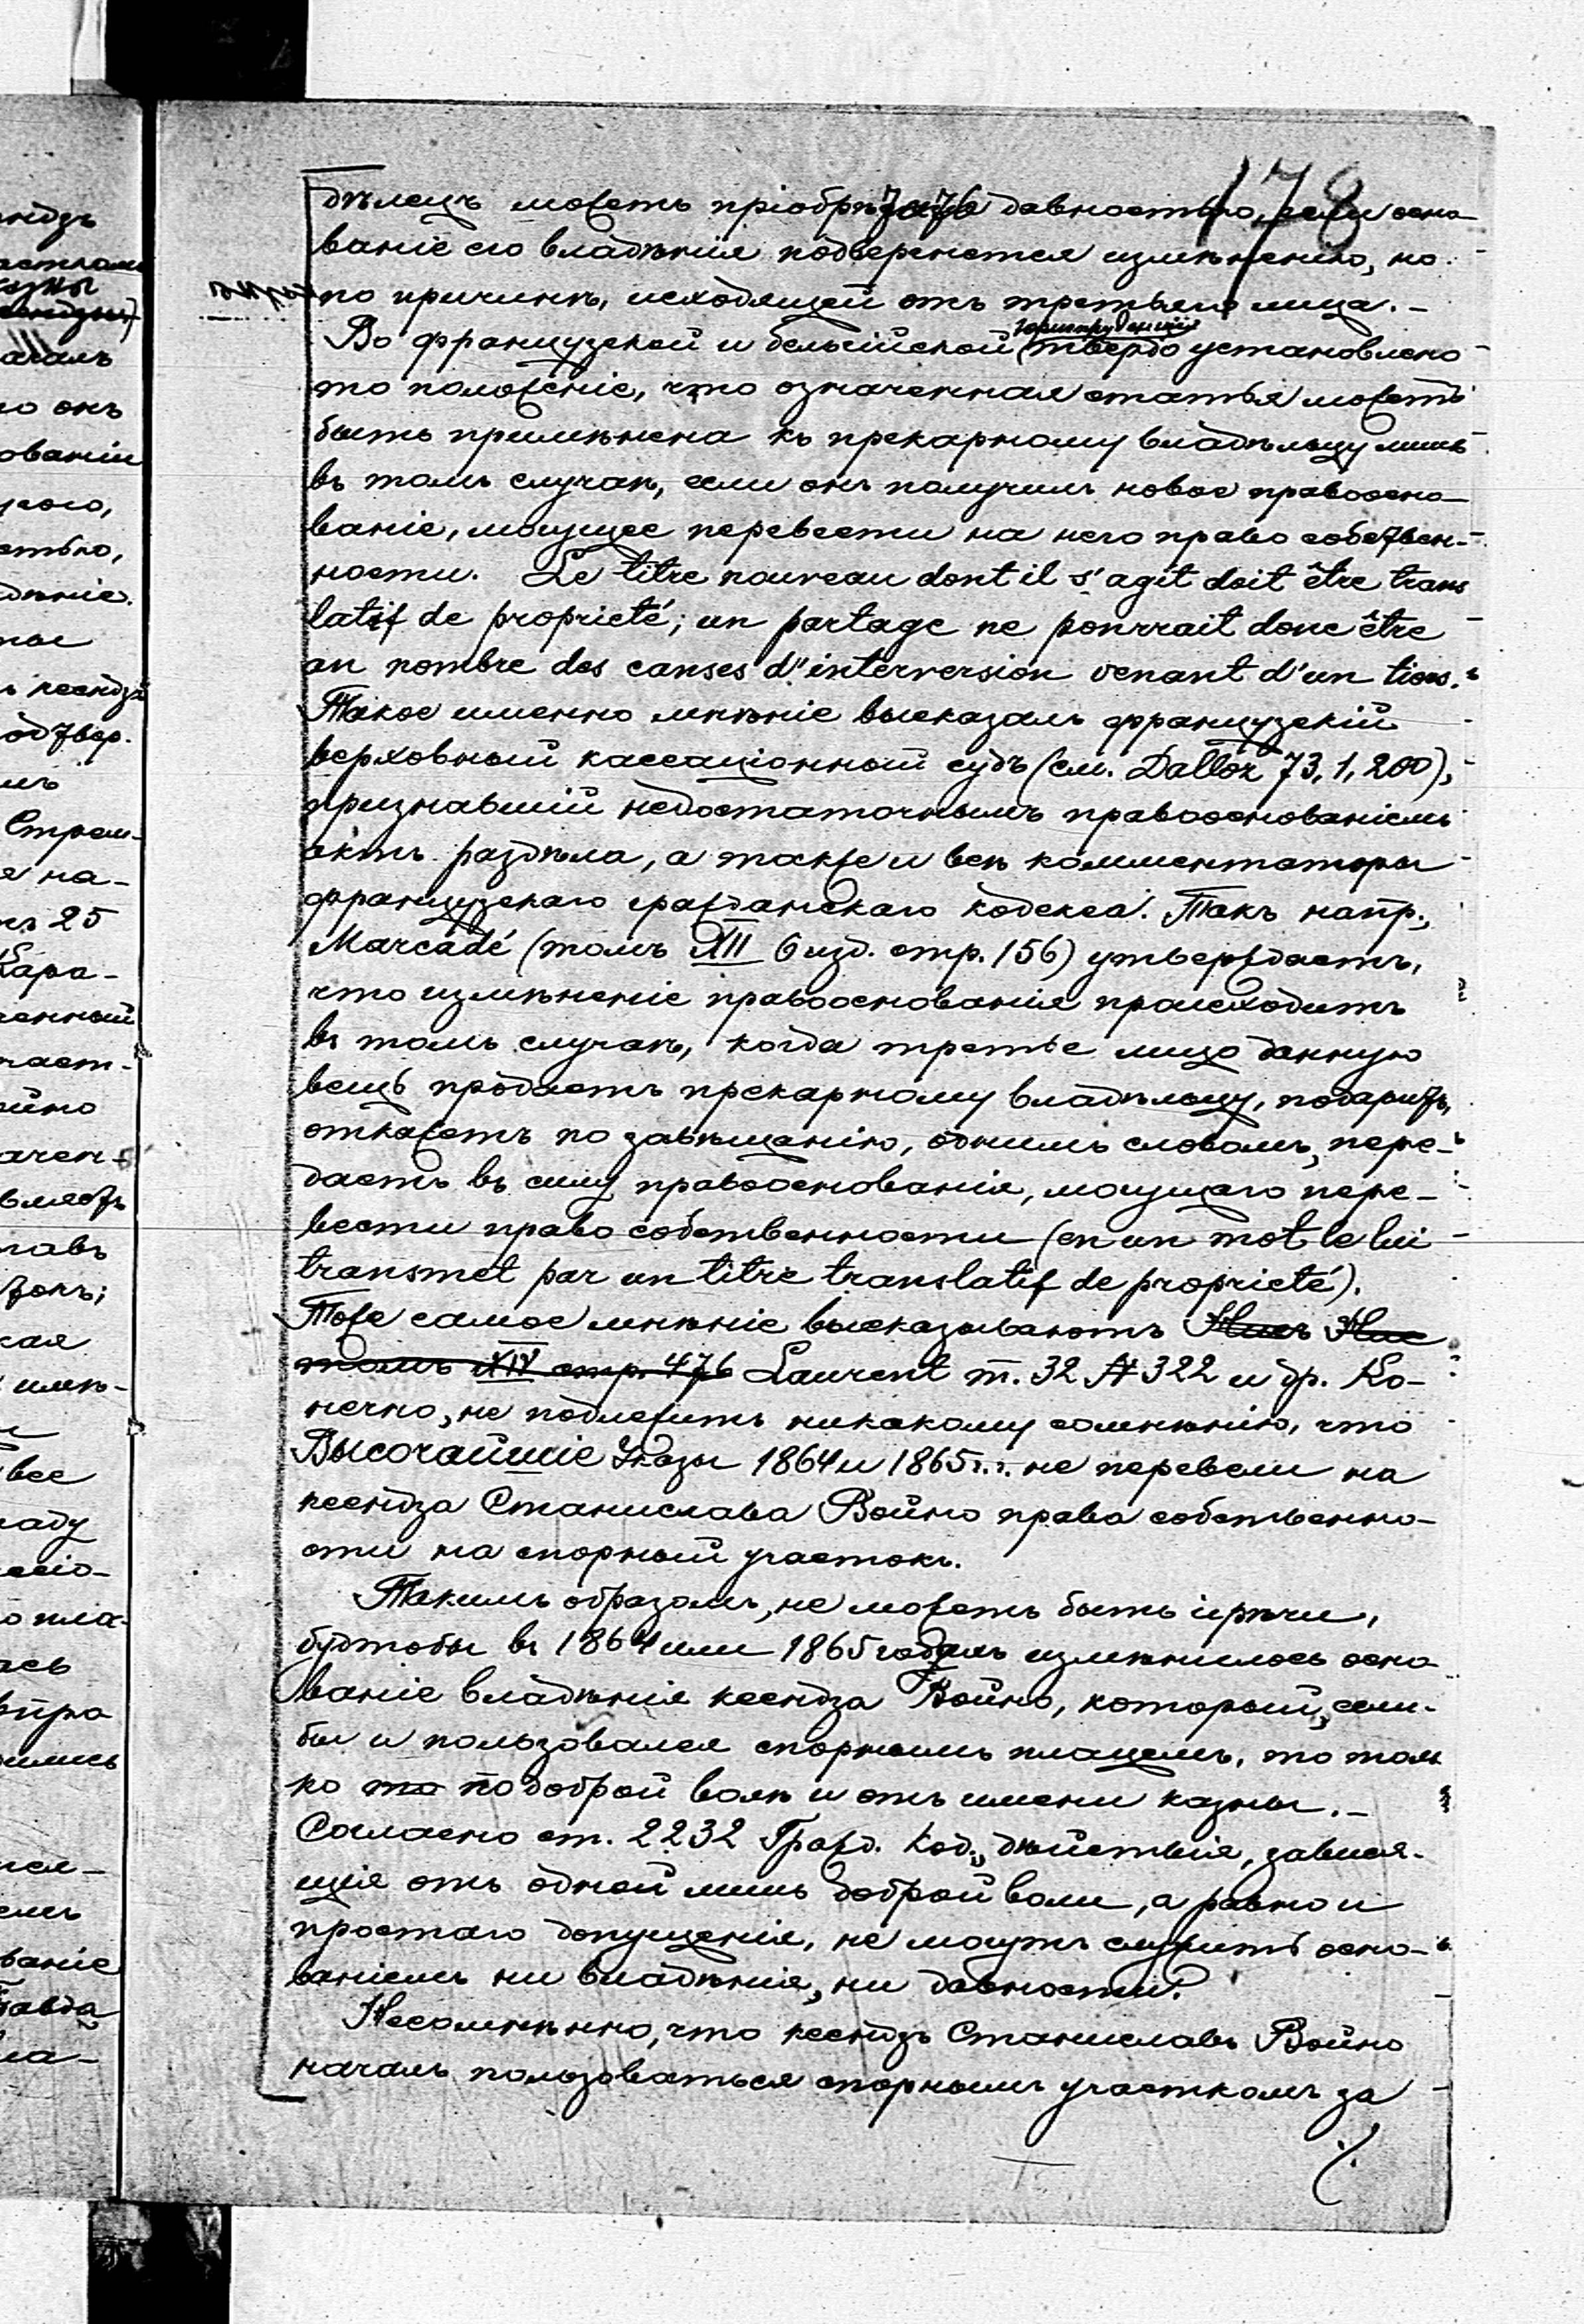 178
дѣлецъ можетъ пріобрѣтать давностью, если осно
ваніе его владѣнія подвергнется измѣненію, но
по причинѣ, исходящей отъ третьяго лица.-
юриспруденціи
Во французской и бельгійской твердо установлено
то положеніе, что означенная статья можетъ
быть примѣнена къ прекарному владѣльцу лишь
въ томъ случаѣ, если онъ получилъ новое правоосно-
ваніе, могущее перевести на него право собствен-
ности. Le titre nouveau dont il s'agit doit être trans
latif de proprieté; un partage ne pourrait donc être
au nombre des causes d'interversion venant d'un tiers."
Такое именно мнѣніе высказалъ французскій
верховный кассаціонный судъ (см. Dalloz 73, 1, 200),
признавшій недостаточнымъ правооснованіемъ
актъ раздѣла, а также и всѣ комментаторы
французскаго гражданскаго кодекса. Такъ напр.,
Marcadé (томъ XII 6 изд. стр. 156) утверждаетъ,
что измѣненіе правооснованія происходитъ
въ томъ случаѣ, когда третье лицо данную
вещь продастъ прекарному владѣльцу, подаритъ,
откажетъ по завѣщанію, однимъ словомъ, пере-
дастъ въ силу правооснованія, могущаго пере-
вести право собственности (en un mot le lui
transmet par un titre translatif de proprieté).
Тоже самое мнѣніе высказываютъ Hue
томъ XIV стр. 476 Laurent т. 32 № 322 и др. Ко-
нечно, не подлежитъ никакому сомнѣнію, что
Высочайшіе Указы 1864 и 1865 г.г. не перевели на
ксендза Станислава Войно права собственно-
сти на спорный участокъ.
Такимъ образомъ, не можетъ быть и рѣчи,
будтобы въ 1864 или 1865 годахъ измѣнилось осно
ваніе владѣнія ксендза Войно, который, если-
бы и пользовался спорнымъ плацемъ, то толь
ко то по доброй волѣ и отъ имени казны.-
Согласно ст. 2232 Гражд. Код., дѣйствія, завися-
щія отъ одной лишь доброй воли, а равно и
простаго допущенія, не могутъ служить осно-
ваніемъ ни владѣнія, ни давности.
Несомнѣнно, что ксендзъ Станиславъ Войно
началъ пользоваться спорнымъ участкомъ за